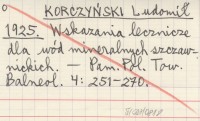 KORCZYŃSKI Ludomił
1925. Wskazania lecznicze
dla wód mineralnych szczaw-
nickich. — Pam. Pol. Tow.
Balneol. 4: 251-270.